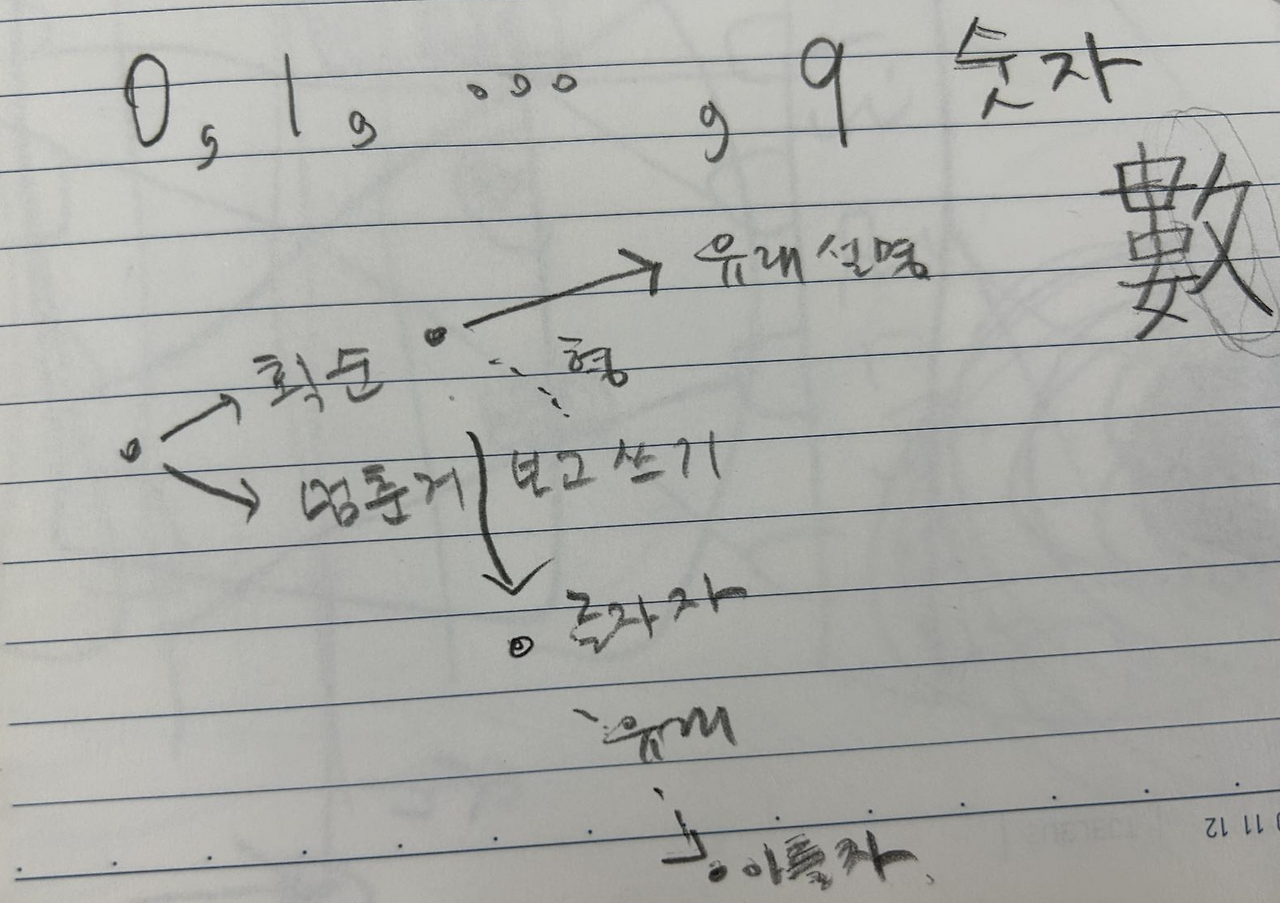 0, 1, ... , 9 숫자
數
유래설명
획순
형
멈춘거
보고쓰기
글자자
유래
이틀자
11 12